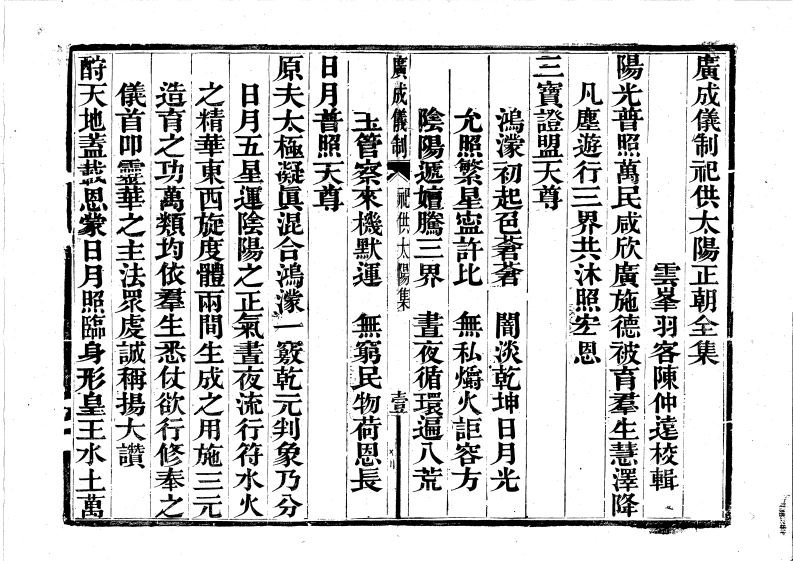 廣成儀制祀供太陽正朝全集
雲峯羽客陳仲遠校輯
陽光普照萬民咸欣廣施德被育羣生慧澤降
凡塵遊行三界共沐照宏恩
三寶證盟天尊
鴻濛初起色蒼蒼　闇淡乾坤日月光
允照繁星寍許比　無私爝火詎容方
陰陽遞嬗騰三界　晝夜循環遍八荒
廣成儀制　祀供太陽集　壹
玉管察來機默運　無窮民物荷恩長
日月普照天尊
原夫太極凝眞混合鴻濛一竅乾元判象乃分
日月五星運陰陽之正氣晝夜流行符水火
之精華東西旋度體兩間生成之用施三元
造育之功萬類均依羣生悉仗欲行修奉之
儀首叩靈華之主法眾虔誠稱揚大讚
酧天地蓋載恩蒙日月照臨身形皇王水土萬